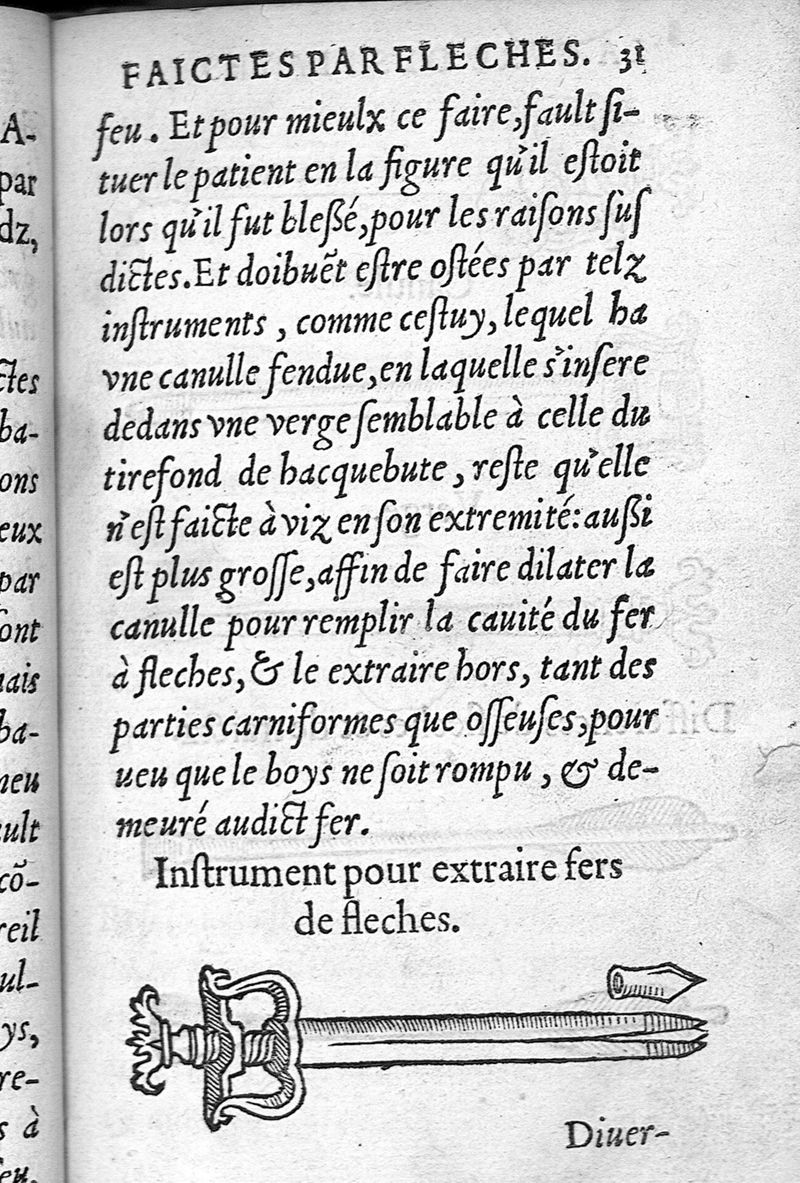 FAICTES PAR FLECHES. 31
feu. Et pour mieulx ce faire, fault ſi-
tuer le patient en la figure qu'il eſtoit
lors qu'il fut bleßé, pour les raiſons ſuſ
dictes. Et doibuẽt eſtre oſtées par telz
inſtruments, comme ceſtuy, lequel ha
vne canulle fendue, en laquelle s'inſere
dedans vne verge ſemblable à celle du
tirefond de hacquebute, reſte qu'elle
n'eſt faicte à viz en ſon extremité: außi
eſt plus groſſe, affin de faire dilater la
canulle pour remplir la cauité du fer
à fleches, & le extraire hors, tant des
parties carniformes que oſſeuſes, pour
ueu que le boys ne ſoit rompu, & de-
meuré audict fer.
Inſtrument pour extraire fers
de fleches.
Diuer-
A-
par
dz,
ctes
ha-
ons
eux
par
ſont
mais
ha-
neu
cõ-
reil
ul-
ys,
re-
s à
feu.